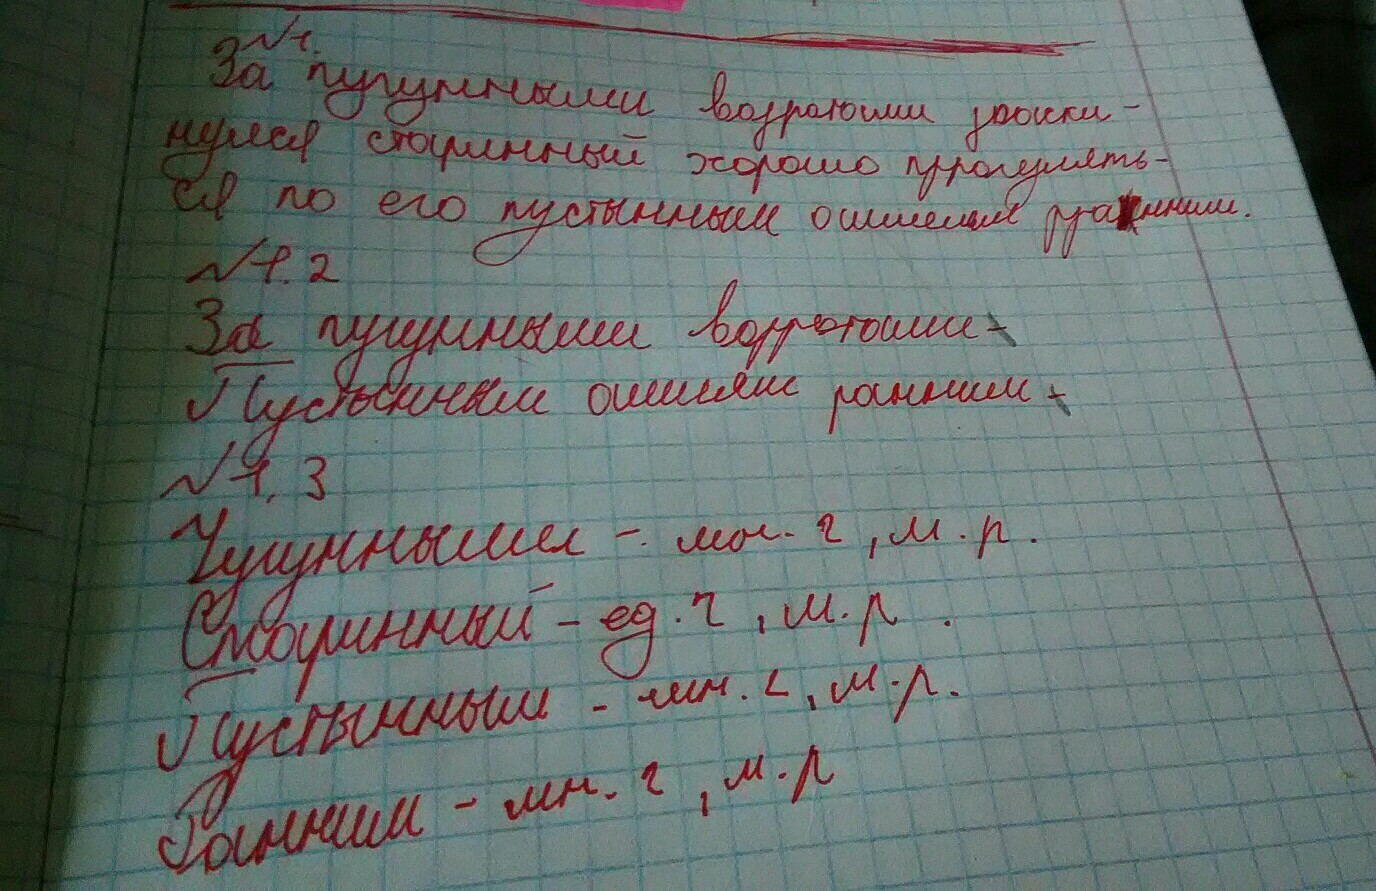 №1.
За чугунными воротами раски-
нулся старинный хорошо прогулять-
ся по его пустынным аллеям ранним.
№1.2
За чугунными воротами-
Пустынным аллеям ранним-
№1.3
Чугунными - мн. ч, м. р.
Старинный - ед. ч, м. р.
Пустынным - мн. ч, м. р.
Ранним - мн. ч, м. р